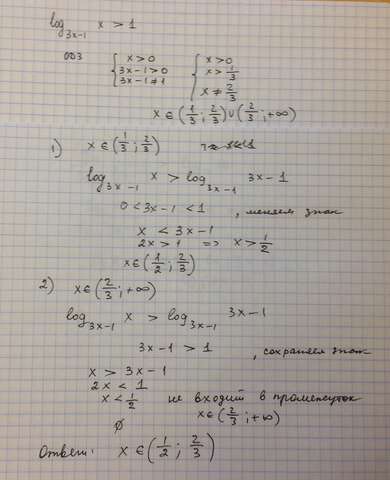 log_{3x-1} x > 1
ОДЗ { x > 0 { x > 0
3x-1 > 0 x > 1/3
3x-1 ≠ 1 x ≠ 2/3
x ∈ (1/3 ; 2/3) ∪ (2/3 ; +∞)
1) x ∈ (1/3 ; 2/3)
log_{3x-1} x > log_{3x-1} 3x-1
0 < 3x-1 < 1 , меняем знак
x < 3x-1
2x > 1 => x > 1/2
x ∈ (1/2 ; 2/3)
2) x ∈ (2/3 ; +∞)
log_{3x-1} x > log_{3x-1} 3x-1
3x-1 > 1 , сохраняем знак
x > 3x-1
2x < 1
x < 1/2 не входит в промежуток
x ∈ (2/3 ; +∞)
∅
Ответ: x ∈ (1/2 ; 2/3)